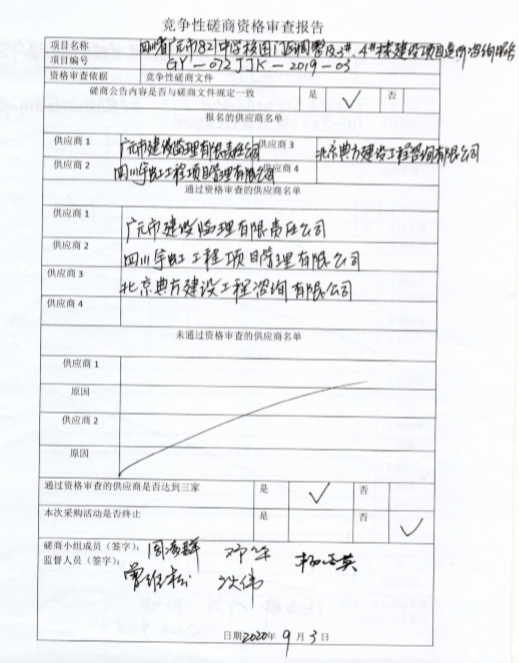 竞争性磋商资格审查报告
项目名称 四川省广元市821中学校园门区调整及3#、4#楼建设项目造价咨询服务
项目编号 GY-072JJK-2019-03
资格审查依据 竞争性磋商文件
磋商公告内容是否与磋商文件规定一致 是 ✓ 否
报名的供应商名单
供应商 1 广元市建设监理有限责任公司 供应商 3 北京典方建设工程咨询有限公司
供应商 2 四川宇虹工程项目管理有限公司 供应商 4
通过资格审查的供应商名单
供应商 1 广元市建设监理有限责任公司
供应商 2 四川宇虹工程项目管理有限公司
供应商 3 北京典方建设工程咨询有限公司
供应商 4
未通过资格审查的供应商名单
供应商 1
原因
供应商 2
原因
通过资格审查的供应商是否达到三家 是 ✓ 否
本次采购活动是否终止 是 否 ✓
磋商小组成员（签字）：
监督人员（签字）：
日期2020年 9月3日